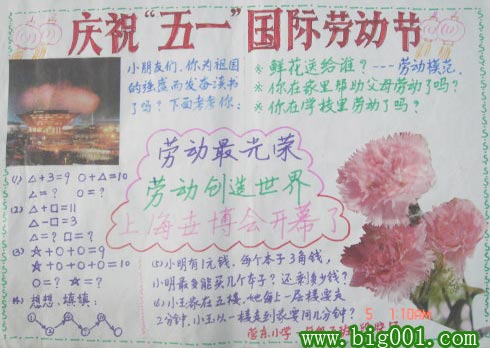 庆祝“五一”国际劳动节
小朋友们,你为祖国
的强盛而发奋读书
了吗?下面考考你:
※鲜花送给谁?---劳动模范.
※你在家里帮助父母劳动了吗?
※你在学校里劳动了吗?
劳动最光荣
劳动创造世界
上海世博会开幕了
1) △+3=9 ○+△=10
△=? ○=?
2) △+□=11
△-□=3
△=? □=?
3) ☆+○+○=9
☆+○+○+○=10
○=? ☆=?
4、想想、填填:
(5)小明有1元钱,每个本子3角钱,
小明最多能买几个本子?还剩多少钱?
(6)小玉家在五楼,她每上一层楼要
2分钟,小玉从一楼走到家要用几分钟?
5 1:10AM
www.big001.com